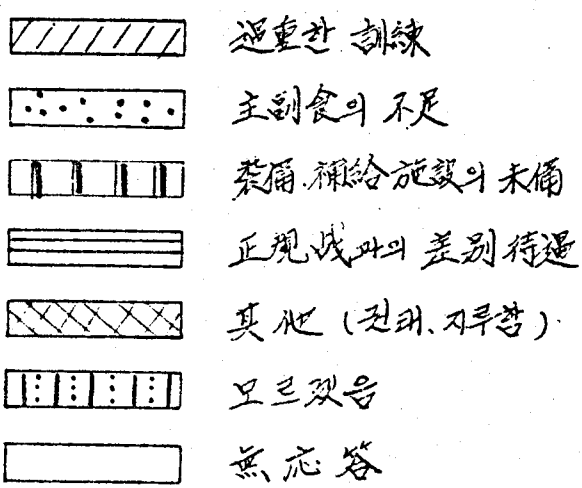 過重한 訓練
主副食의 不足
裝備.補給施設의 未備
正規战과의 差別待遇
其他 (권태、지루함).
모르겠음
無応答